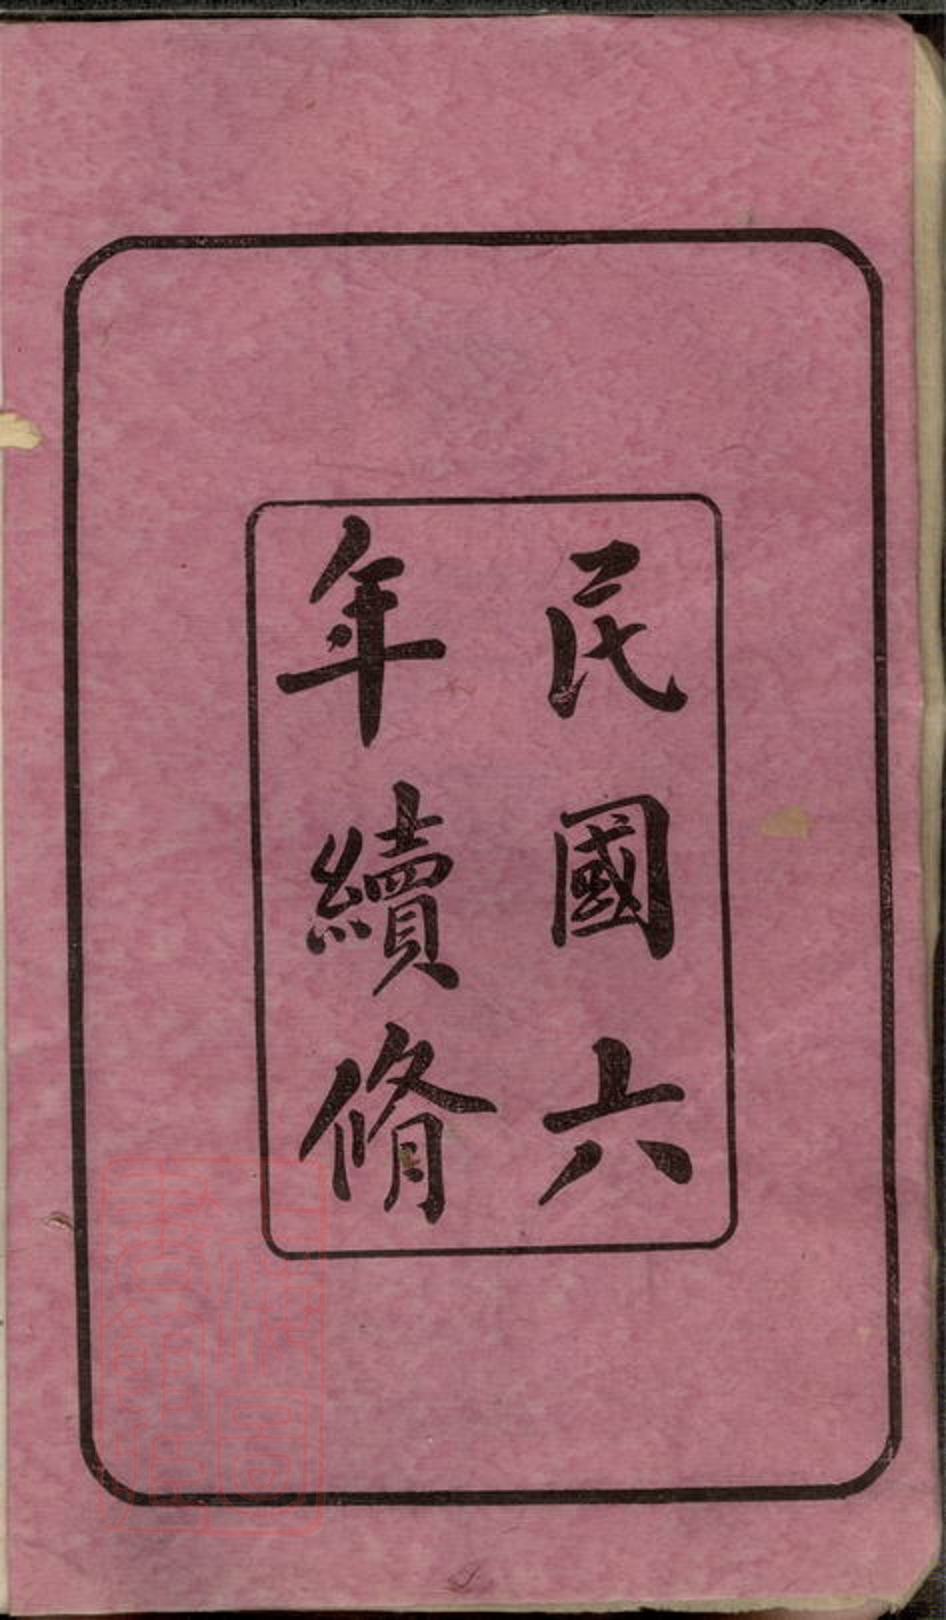 民國六
年續脩